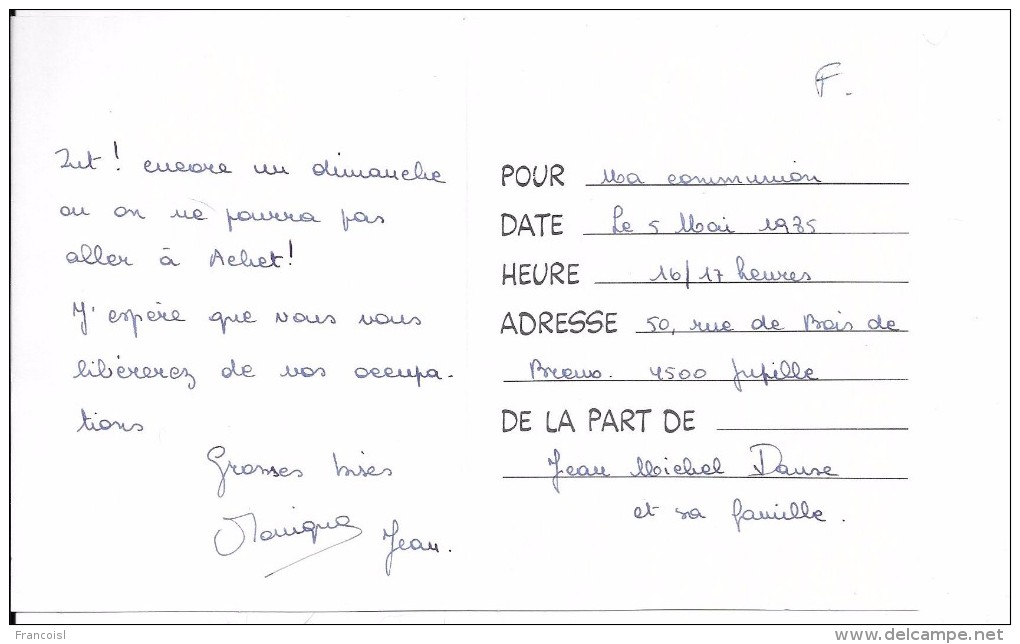 F.
Zut! encore un dimanche
ou on ne pourra pas
aller à Achet!
J'espère que vous vous
libérerez de vos occupa-
tions
Grosses bises
Monique Jean.
POUR Ma communion
DATE Le 5 Mai 1985
HEURE 16/17 heures
ADRESSE 50, rue de Bois de
Breux. 4500 Jupille
DE LA PART DE
Jean Michel Danse
et sa famille.
Francoisl
www.delcampe.net